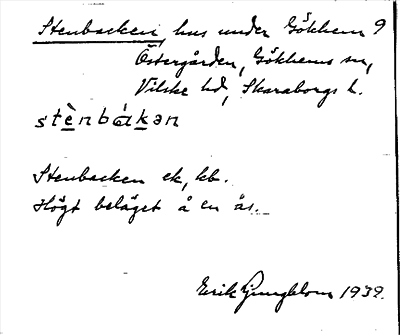 Stenbacken, hus under Gökhem 9
Östergården, Gökhems sn,
Vilske hd, Skaraborgs l.
stènbákan
Stenbacken ek, kb.
Högt beläget å en ås.
Erik Ljungblom 1939.